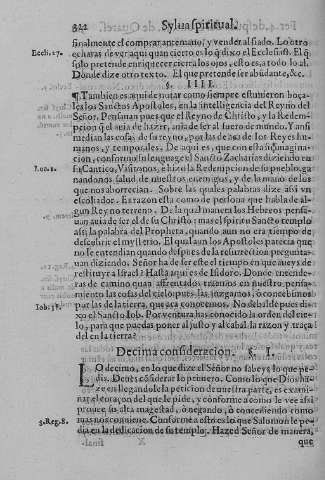 322 Sylua spiritual.
finalmente el comprar antemano, y vender al fiado. Lo otro
Eccli. 27. echaras de ver aqui quan cierto es lo q̃ dixo el Eclesiast. El q̃
solo pretende enriquecer cierra los ojos, esto es, a todo lo al.
Donde dize otro texto. El que pretende ser abũdante, &c.
§. IIII.
¶ Tambien es aqui de notar como siempre estuuieron
los Sanctos Apostoles, en la inteligencia del Reyno del
Señor. Pensauan pues que el Reyno de Christo, y la Redemp-
cion q̃ el auia de hazer, auia de ser al fuero de mundo. Tantẽ
median las cosas de su reyno, por las de aca de los Reyes hu-
manos, y temporales. De aqui es, que con esta imagina-
cion, conformã su lenguage el Sancto Zacharias diziendo en
Luc. 1. su Cantico, Visitonos, e hizo la Redempcion de su pueblo,
nandonos salud de nuestros enemigos, y de la mano de los
que nos aborrecian. Sobre las quales palabras dize assi vn
escoliador. Esta razon esta como de persona que habla de al-
gun Reyno terreno. De la qual manera los Hebreos pensa-
uan auia de ser el de su Christo: mas el Spiritu Sancto templo
assi la palabra del Propheta, quando aun no era tiempo de
descubrir el mysterio. El qual aun los Apostoles parecia que
no le entendian quando despues de la resurrection pregunta-
uan diziendo. Señor ha de ser este el tiempo en que aueys de
restituyr a Israel? Hasta aqui es de Isidoro. Donde entende-
ras de camino quan affrentados traemos en nuestro pensa-
miento las cosas del cielo, pues las juzgamos, i conocemos
por las de la tierra, que aca conocemos. No sabes le pues di-
Iob. 38. xo el Sancto Iob. Por ventura has conocido la orden del cie-
lo, para que puedas poner al justo, y al cabal la razon y traça
del en la tierra?
Decima consideracion. §. I.
LO decimo, en lo que dize el Señor no sabeys lo que pe-
dis. Deues considerar lo primero. Como los que Dios haze
en llegandole la peticion de nuestra parte, es exami-
nar el coraçon del que le pide, y conforme a como le vee assi
prouee su alta magestad, ò negando, ò concediendo como
mas nos conuiene. Conforme a esto es lo que Salomon le pe-
3. Reg. 8. dia en la dedicacion de su templo. Hazed Señor de manera,
X que